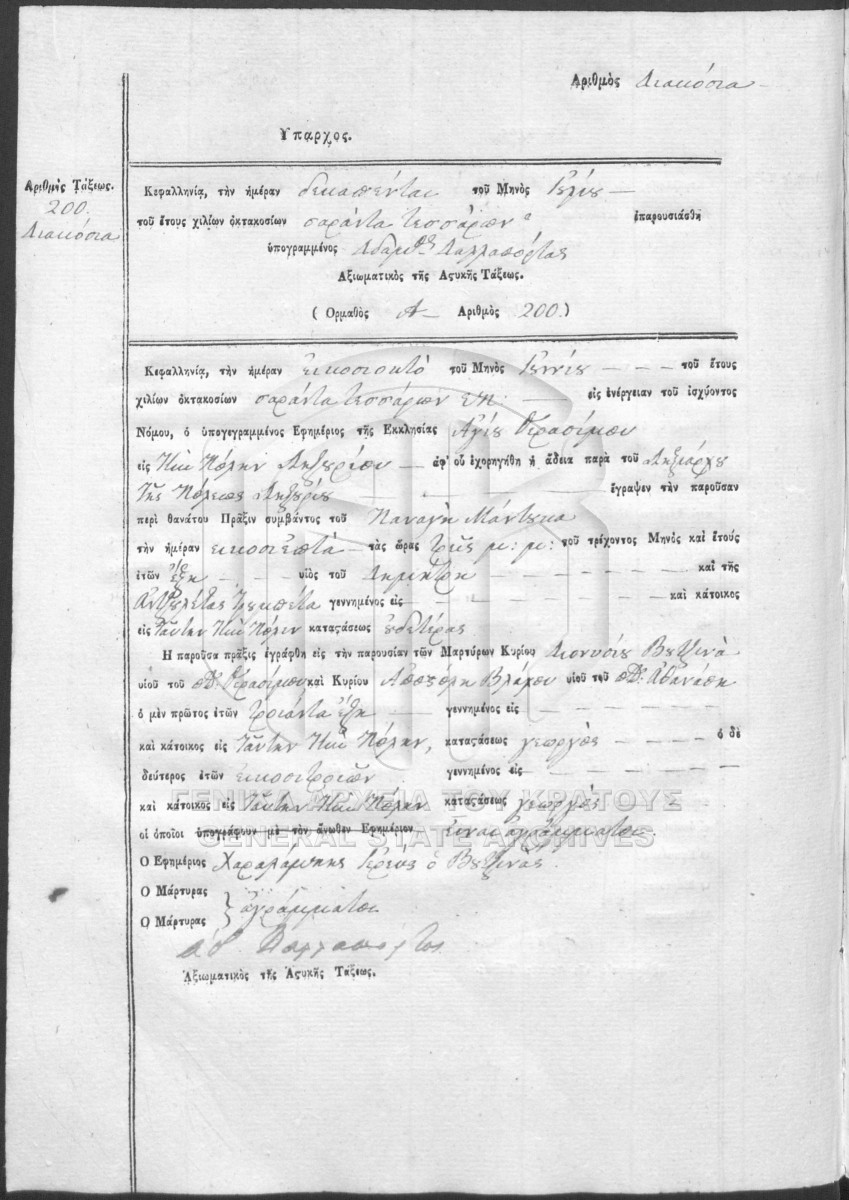 Αριθμὸς Διακόσια
Υπαρχος.
Αριθμὸς Τάξεως.
200.
Διακόσια
Κεφαλληνία, τὴν ἡμέραν δεκαπένται τοῦ Μηνὸς
τοῦ ἔτους χιλίων ὀκτακοσίων σαράντα τεσσάρων ἐπαρουσιάσθη
ὑπογραμμένος
Αξιωματικὸς τῆς Αςυκῆς Τάξεως.
( Ορμαθὸς Α Αριθμὸς 200.)
Κεφαλληνία, τὴν ἡμέραν εικοσιοκτὸ τοῦ Μηνὸς τοῦ ἔτους
χιλίων ὀκτακοσίων σαράντα τεσσάρων εἰς ἐνέργειαν τοῦ ἰσχύοντος
Νόμου, ὁ ὑπογεγραμμένος Εφημέριος τῆς Εκκλησίας Αγίου Γερασίμου
εἰς Πόλην Ληξουρίου ἀφ' οὗ ἐχορηγήθη ἡ ἄδεια παρὰ τοῦ Ληξιάρχου
Της Πόλεως Ληξουρίου ἔγραψεν τὴν παροῦσαν
περὶ θανάτου Πρᾶξιν συμβάντος τοῦ Παναγῆ
τὴν ἡμέραν εικοσιεπτὰ τὰς ὥρας τρεῖς μ: μ: τοῦ τρέχοντος Μηνὸς καὶ ἔτους
ἐτῶν ἕξη υἱὸς τοῦ Δημήτρη καὶ τῆς
γεννημένος εἰς καὶ κάτοικος
εἰς Ταύτην Πόλιν καταςάσεως ουδετέρας
Η παροῦσα πρᾶξις ἐγράφθη εἰς τὴν παρουσίαν τῶν Μαρτύρων Κυρίου Διονυσίου
υἱοῦ τοῦ Γερασίμου καὶ Κυρίου Αποστόλη Βλάχου υἱοῦ τοῦ Αθανάση
ὁ μὲν πρῶτος ἐτῶν τριάντα ἕξη γεννημένος εἰς
καὶ κάτοικος εἰς Ταύτην Πόλην, καταςάσεως γεωργὸς ὁ δὲ
δεύτερος ἐτῶν εικοσιτριῶν γεννημένος εἰς
καὶ κάτοικος εἰς Ταύτην Πόλην καταςάσεως γεωργὸς
οἱ ὁποῖοι ὑπογράφουν μὲ τὸν ἄνωθεν Εφημέριον Είναι αγράμματοι.
Ο Εφημέριος Χαραλάμπης Ιερεὺς ὁ
Ο Μάρτυρας
Ο Μάρτυρας } ἀγράμματοι
Αξιωματικὸς τῆς Αςυκῆς Τάξεως.
ΓΕΝΙΚΑ ΑΡΧΕΙΑ ΤΟΥ ΚΡΑΤΟΥΣ
GENERAL STATE ARCHIVES